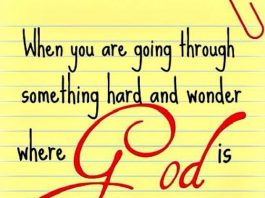 When you are going through
something hard and wonder
where God is